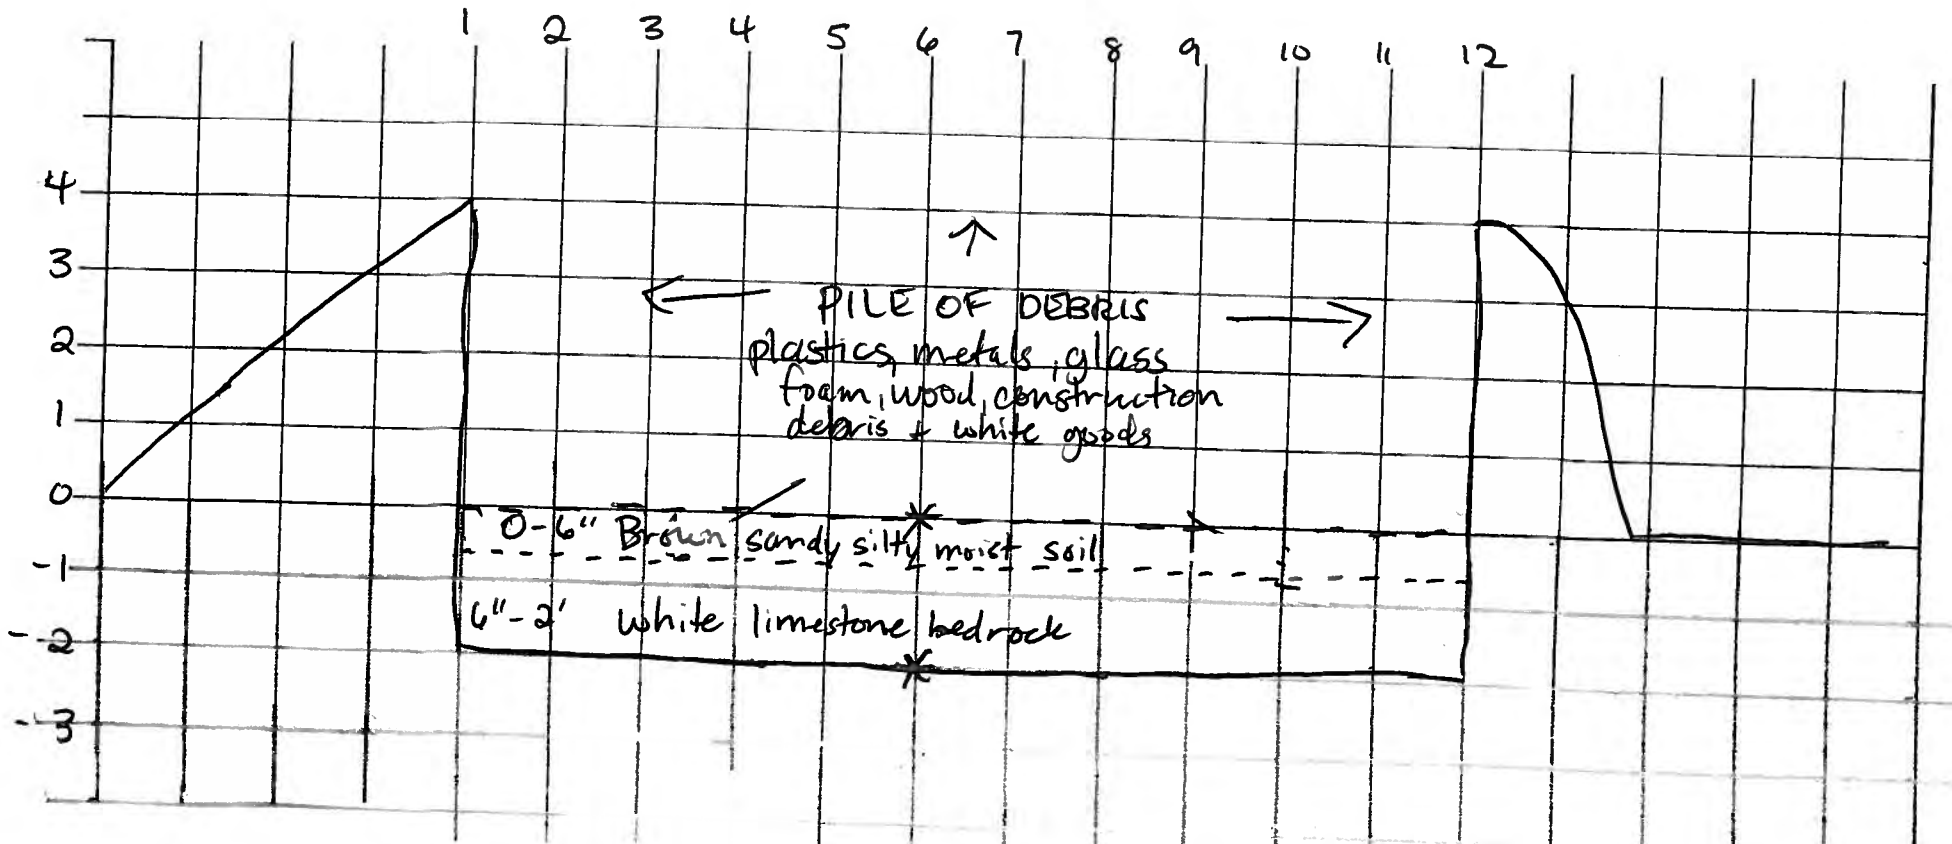 1 2 3 4 5 6 7 8 9 10 11 12
4
3
PILE OF DEBRIS
2
plastics, metals, glass
foam, wood, construction
1
debris + white goods
0
0-6" Brown sandy silty moist soil
-1
6"-2' white limestone bedrock
-2
-3